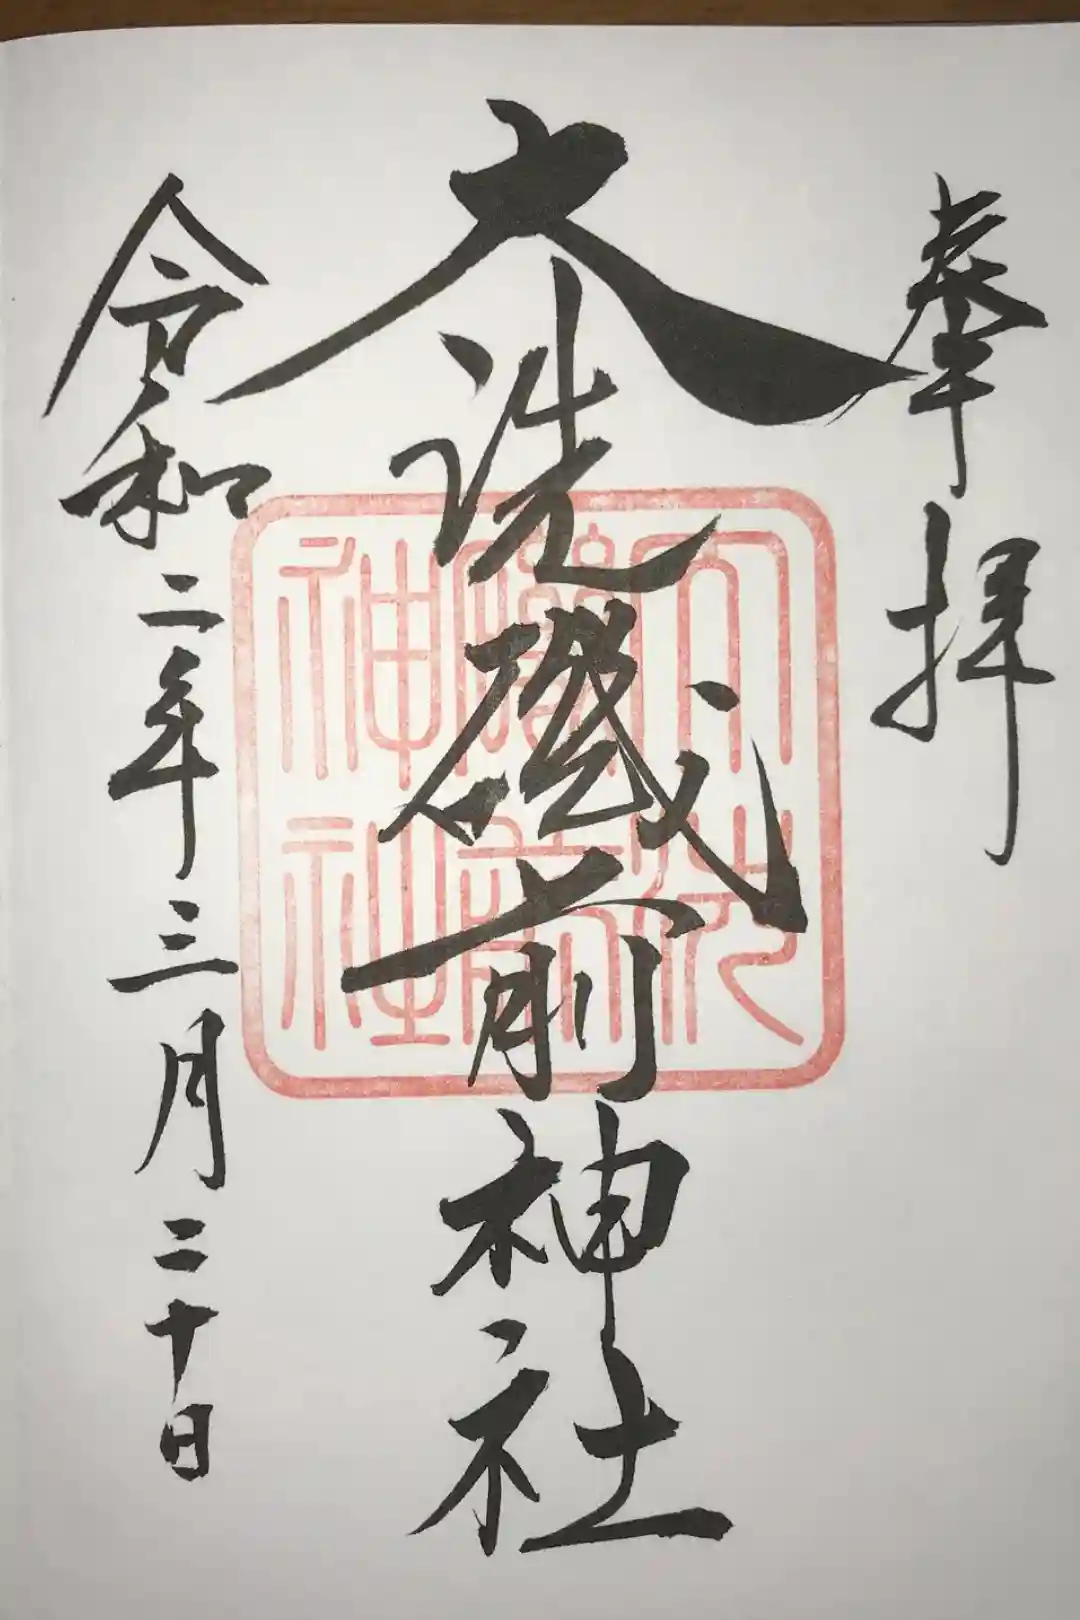 奉拝
大洗磯前神社
大洗
磯前
神社
令和二年三月二十日